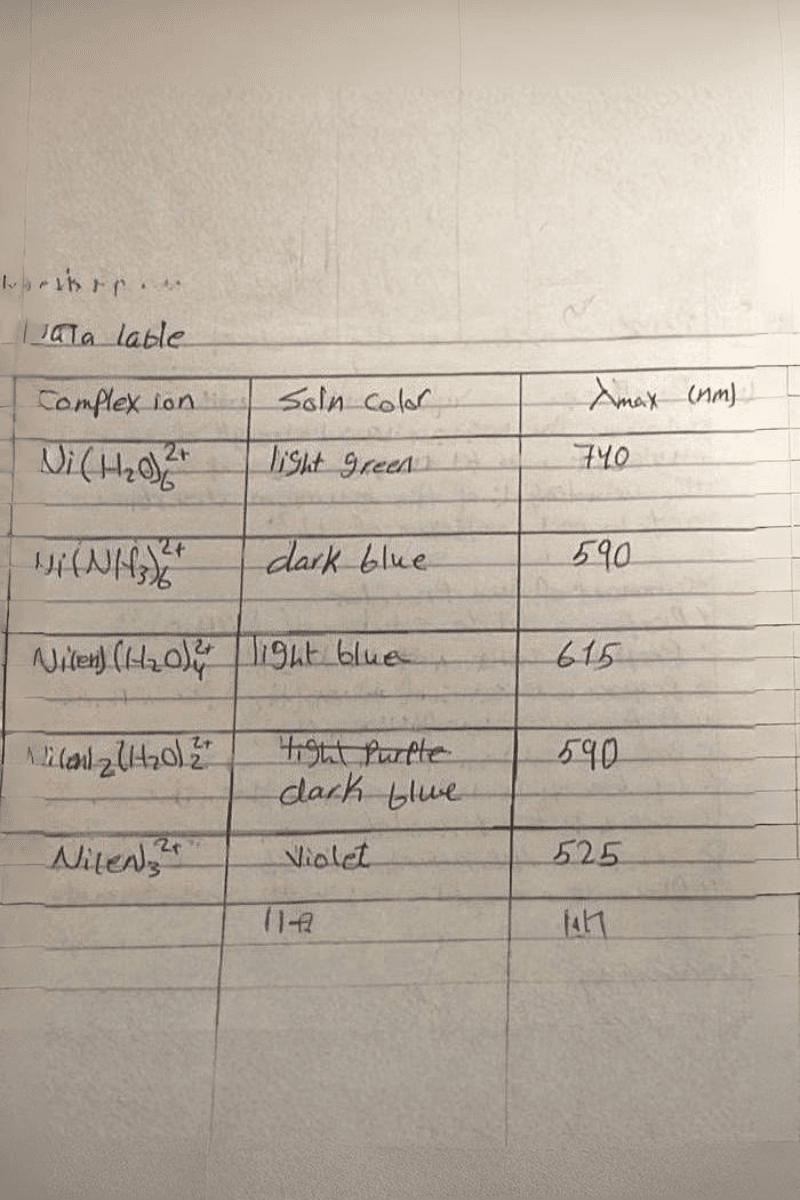 Data Table
Complex ion Soln color λmax (nm)
Ni(H₂O)₆²⁺ light green 740
Ni(NH₃)₆²⁺ dark blue 590
Ni(en)(H₂O)₄²⁺ light blue 615
Ni(en)₂(H₂O)₂²⁺ light purple 590
dark blue
Ni(en)₃²⁺ violet 525